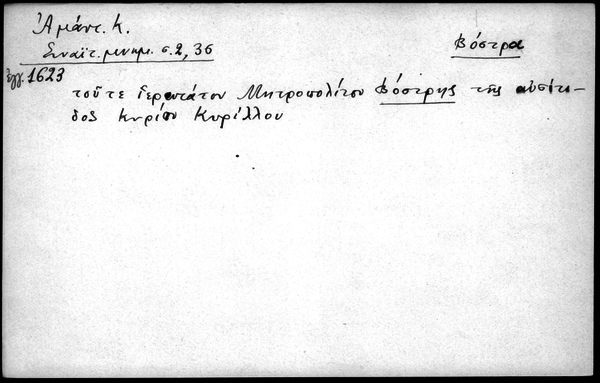 Ἀμάντ. Κ.
Σιναϊτ. μνημ. σ. 2, 36
Βόστρα
ἔγγ. 1623
τοῦ τε ἱερωτάτου Μητροπολίτου Βόστρης τῆς αὐσίτι-
δος κυρίου Κυρίλλου